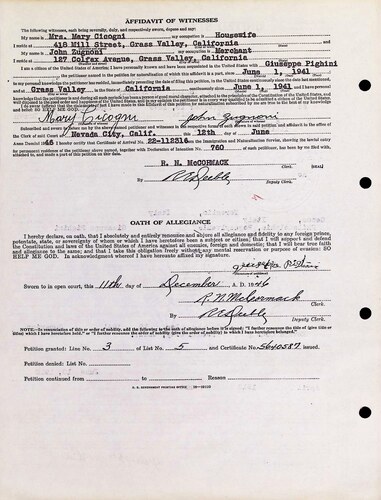 AFFIDAVIT OF WITNESSES
The following witnesses, each being severally, duly, and respectively sworn, depose and say:
My name is Mrs. Mary Cicogni my occupation is Housewife
I reside at 418 Mill Street, Grass Valley, California
My name is John Zugnoni my occupation is Merchant
I reside at 127 Colfax Avenue, Grass Valley, California
I am a citizen of the United States of America; I have personally known and have been acquainted in the United States with Giuseppe Pighini
the petitioner named in the petition for naturalization of which this affidavit is a part, since June 1, 1941
to my personal knowledge the petitioner has resided, immediately preceding the date of filing this petition, in the United States continuously since the date last mentioned,
and at Grass Valley in the State of California continuously since June 1, 1941 and I have personal
Mary Cicogni John Zugnoni
Subscribed and sworn to before me by the above-named petitioner and witnesses in the respective forms of oath shown in said petition and affidavit in the office of the
Clerk of said Court at Nevada City, Calif. this 12th day of June
Anno Domini 1945 I hereby certify that Certificate of Arrival No. 22-112316 from the Immigration and Naturalization Service, showing the lawful entry
for permanent residence of the petitioner above named, together with Declaration of Intention No. 760 of such petitioner, has been by me filed with,
attached to, and made a part of this petition on this date.
R. N. McCORMACK
Clerk. [SEAL]
By Deputy Clerk.
OATH OF ALLEGIANCE
I hereby declare, on oath, that I absolutely and entirely renounce and abjure all allegiance and fidelity to any foreign prince,
potentate, state, or sovereignty of whom or which I have heretofore been a subject or citizen; that I will support and defend
the Constitution and laws of the United States of America against all enemies, foreign and domestic; that I will bear true faith
and allegiance to the same; and that I take this obligation freely without any mental reservation or purpose of evasion: SO
HELP ME GOD. In acknowledgment whereof I have hereunto affixed my signature.
Giuseppe Pighini
Sworn to in open court, this 11th day of December A. D. 1946
R. N. McCormack
Clerk.
By
Deputy Clerk.
NOTE.—In renunciation of title or order of nobility, add the following to the oath of allegiance before it is signed: "I further renounce the title of (give title or
titles) which I have heretofore held," or "I further renounce the order of nobility (give the order of nobility) to which I have heretofore belonged."
Petition granted: Line No. 3 of List No. 5 and Certificate No. 5640587 issued.
Petition denied: List No.
Petition continued from to Reason
U. S. GOVERNMENT PRINTING OFFICE